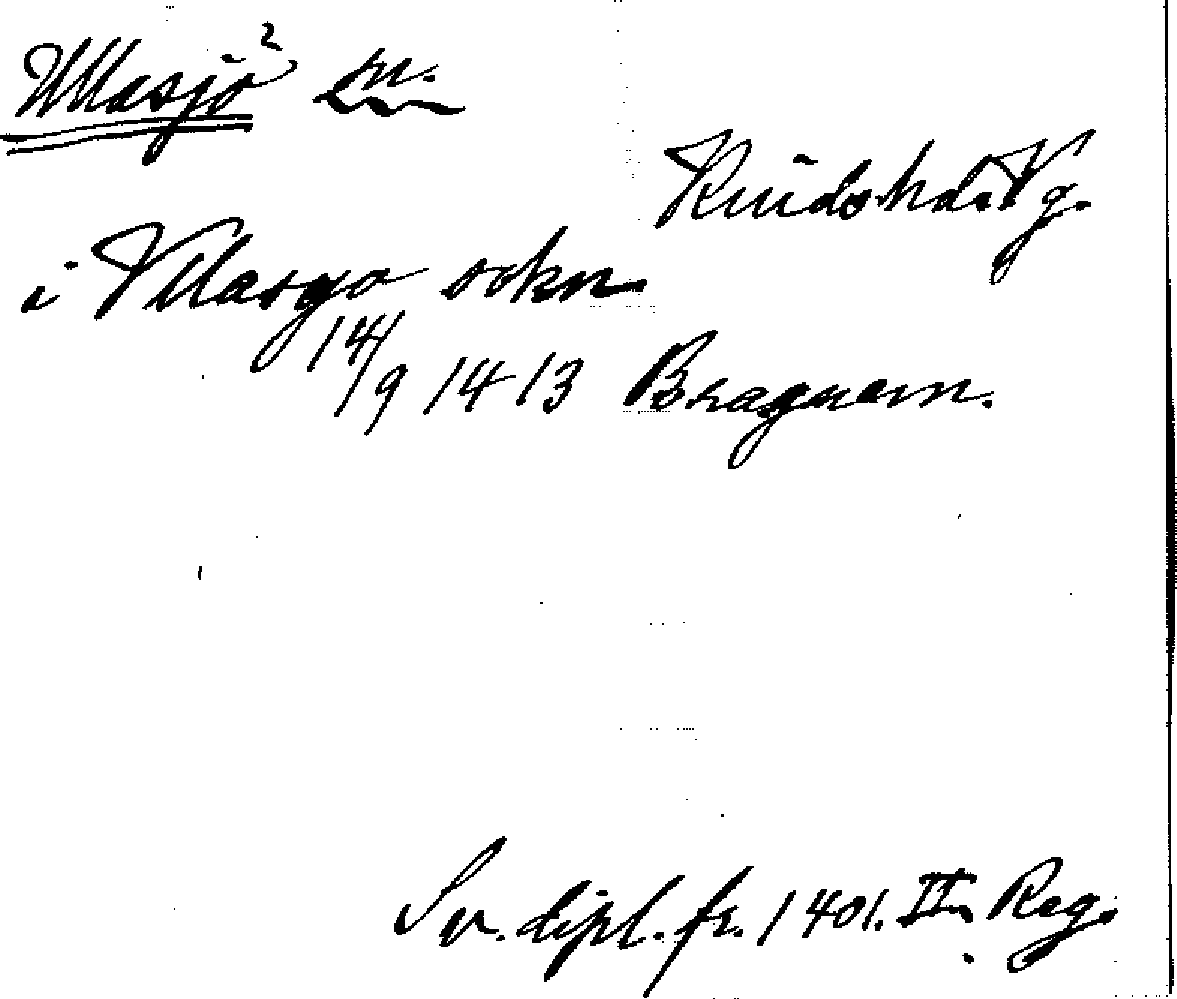 Ullasjö² sn.
Kinds hd. Vg.
i Vllasyo sokn
14/9 1413 Bragnum.
Sv. dipl. fr. 1401. II. Reg.